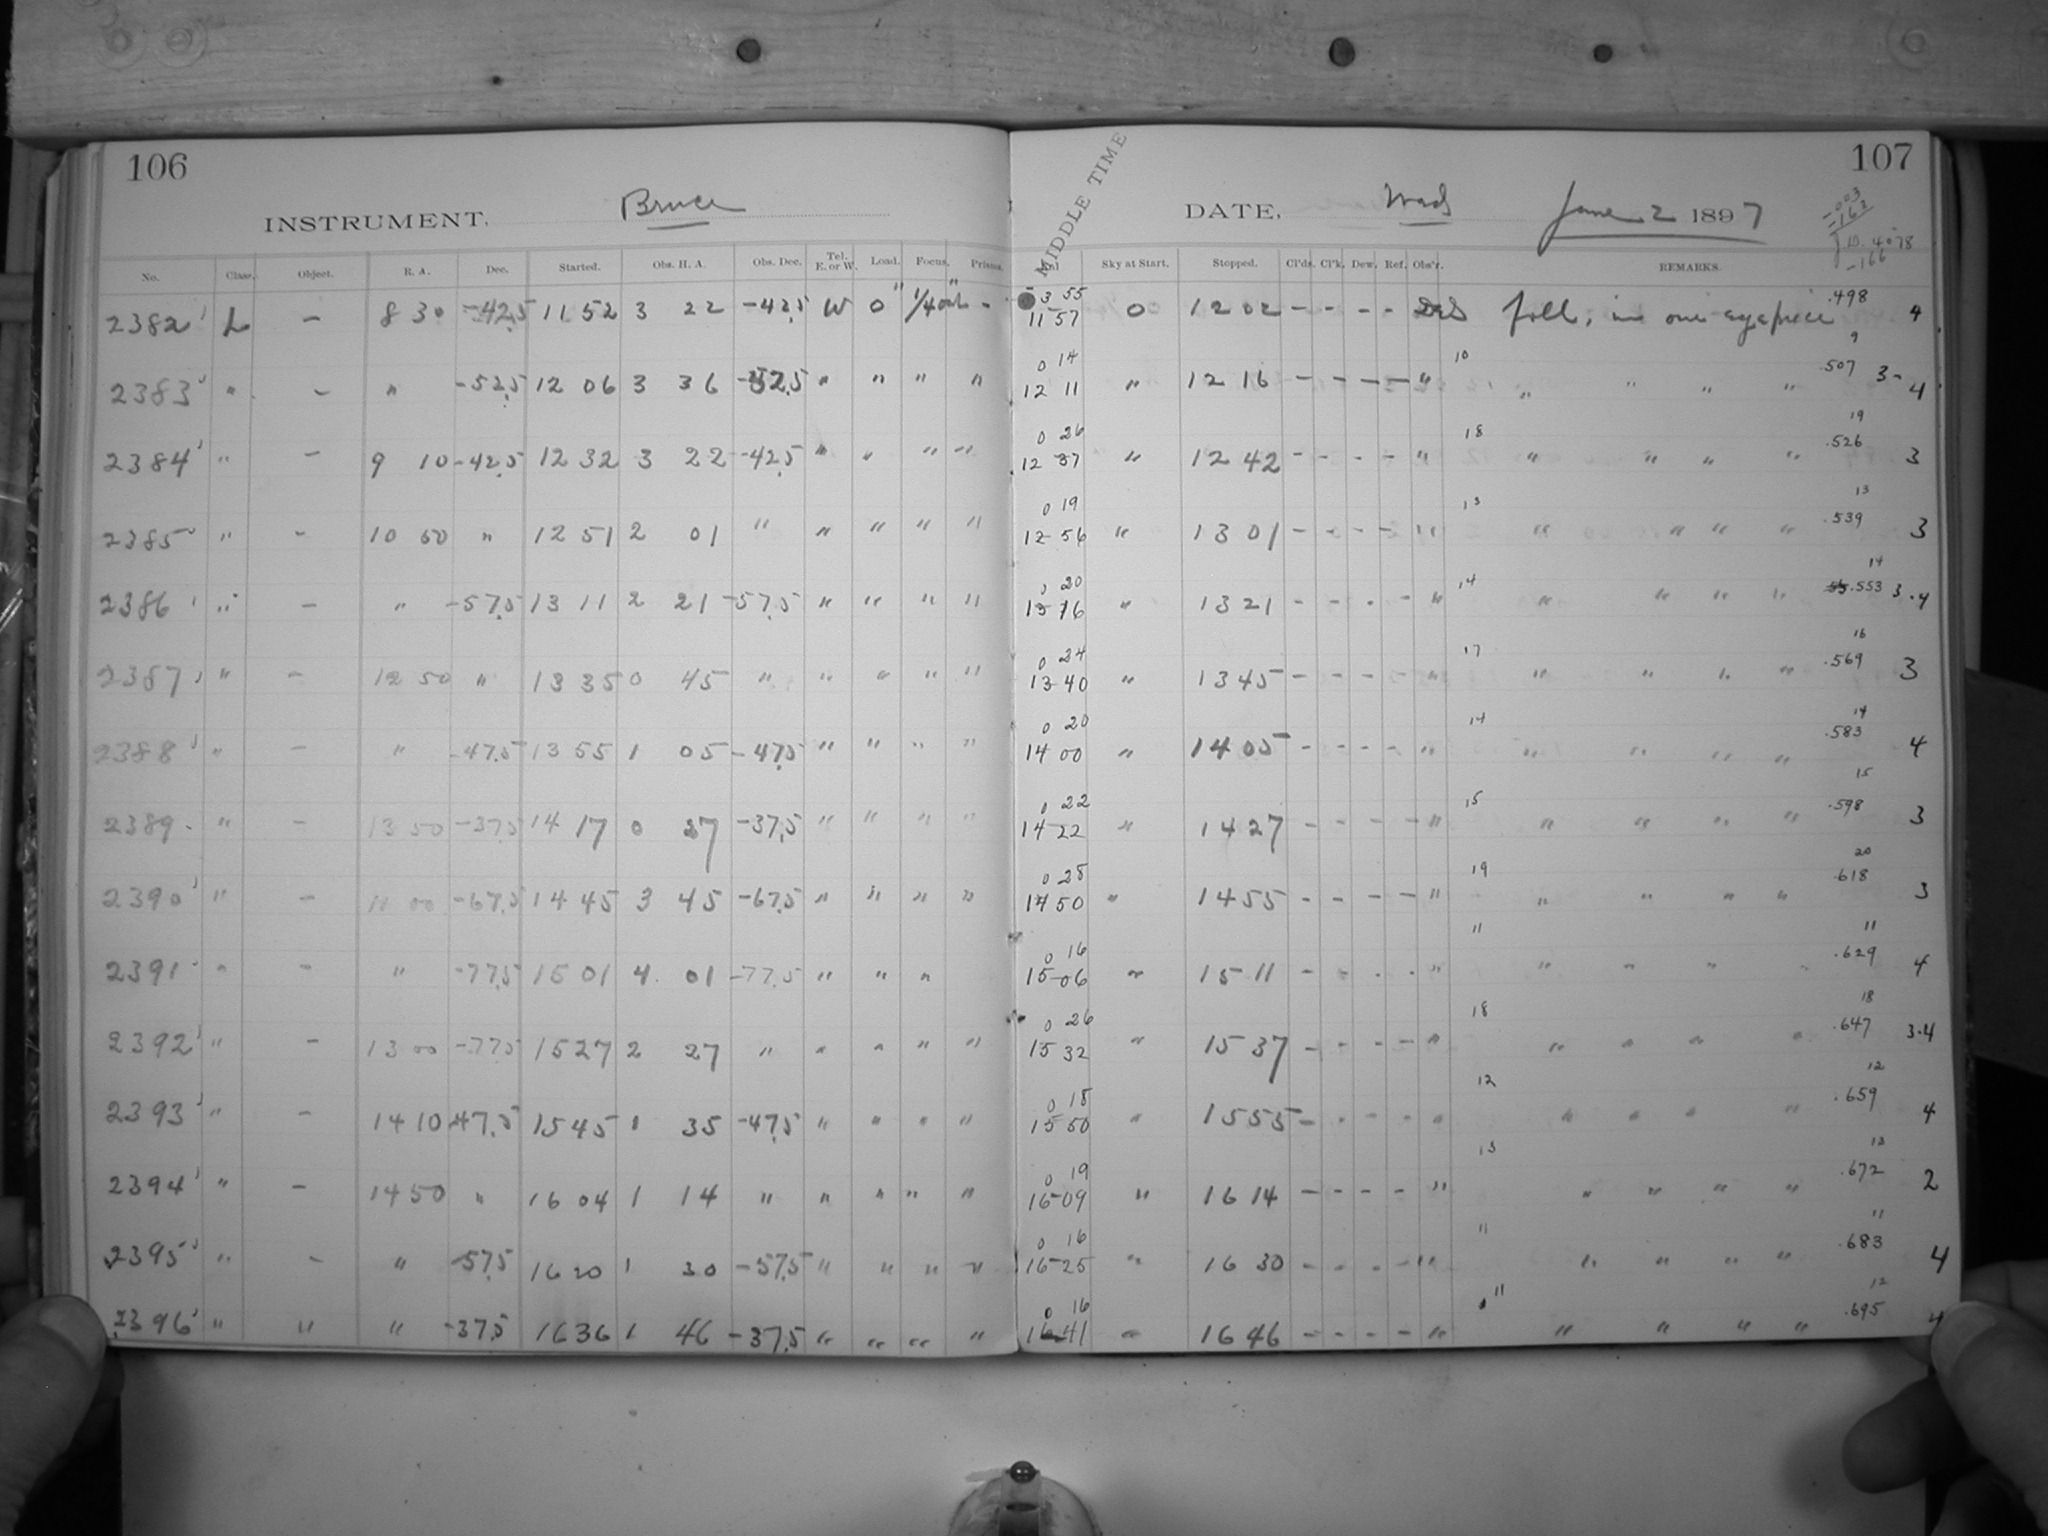 106
107
INSTRUMENT, Bruce
MIDDLE TIME
DATE, Wed June 2 1897
-.003
-163
-166
No. Class. Object. R. A. Dec. Started. Obs. H. A. Obs. Dec. Tel. E. or W. Load. Focus. Prisms. Sky at Start. Stopped. Cl'ds. Cl'k. Dew. Ref. Obs'r. REMARKS.
3 55 .498
2382 L - 8 30 -42.5 11 52 3 22 -42.5 W 0 - 11 57 0 12 02 - - - - foll. in one eyepiece 4
0 14 10 9 .507
2383 " - " -52.5 12 06 3 36 -52.5 " " " " 12 11 " 12 16 - - - - " " " " " 3-4
0 26 18 19 .526
2384 " - 9 10 -42.5 12 32 3 22 -42.5 " " " " 12 37 " 12 42 - - - - " " " " " 3
0 19 13 13 .539
2385 " - 10 50 " 12 51 2 01 " " " " " 12 56 " 13 01 - - - - " " " " " 3
0 20 14 14 .553
2386 " - " -57.5 13 11 2 21 -57.5 " " " " 13 16 " 13 21 - - - - " " " " " 3-4
0 24 17 16 .569
2387 " - 12 50 " 13 35 0 45 " " " " " 13 40 " 13 45 - - - - " " " " " 3
0 20 14 14 .583
2388 " - " -47.5 13 55 1 05 -47.5 " " " " 14 00 " 14 05 - - - - " " " " " 4
0 22 15 15 .598
2389 " - 13 50 -37.5 14 17 0 27 -37.5 " " " " 14 22 " 14 27 - - - - " " " " " 3
0 28 19 20 .618
2390 " - 11 00 -67.5 14 45 3 45 -67.5 " " " " 14 50 " 14 55 - - - - " " " " " 3
0 16 11 11 .629
2391 " - " -77.5 15 01 4 01 -77.5 " " " 15 06 " 15 11 - - - - " " " " " 4
0 26 18 18 .647
2392 " - 13 00 -77.5 15 27 2 27 " " " " " 15 32 " 15 37 - - - - " " " " " 3-4
0 18 12 12 .659
2393 " - 14 10 -47.5 15 45 1 35 -47.5 " " " " 15 50 " 15 55 - - - - " " " " " 4
0 19 13 13 .672
2394 " - 14 50 " 16 04 1 14 " " " " " 16 09 " 16 14 - - - - " " " " " 2
0 16 11 11 .683
2395 " - " -57.5 16 20 1 30 -57.5 " " " " 16 25 " 16 30 - - - - " " " " " 4
0 16 11 12 .695
2396 " " " -37.5 16 36 1 46 -37.5 " " " " 16 41 " 16 46 - - - - " " " " " 4